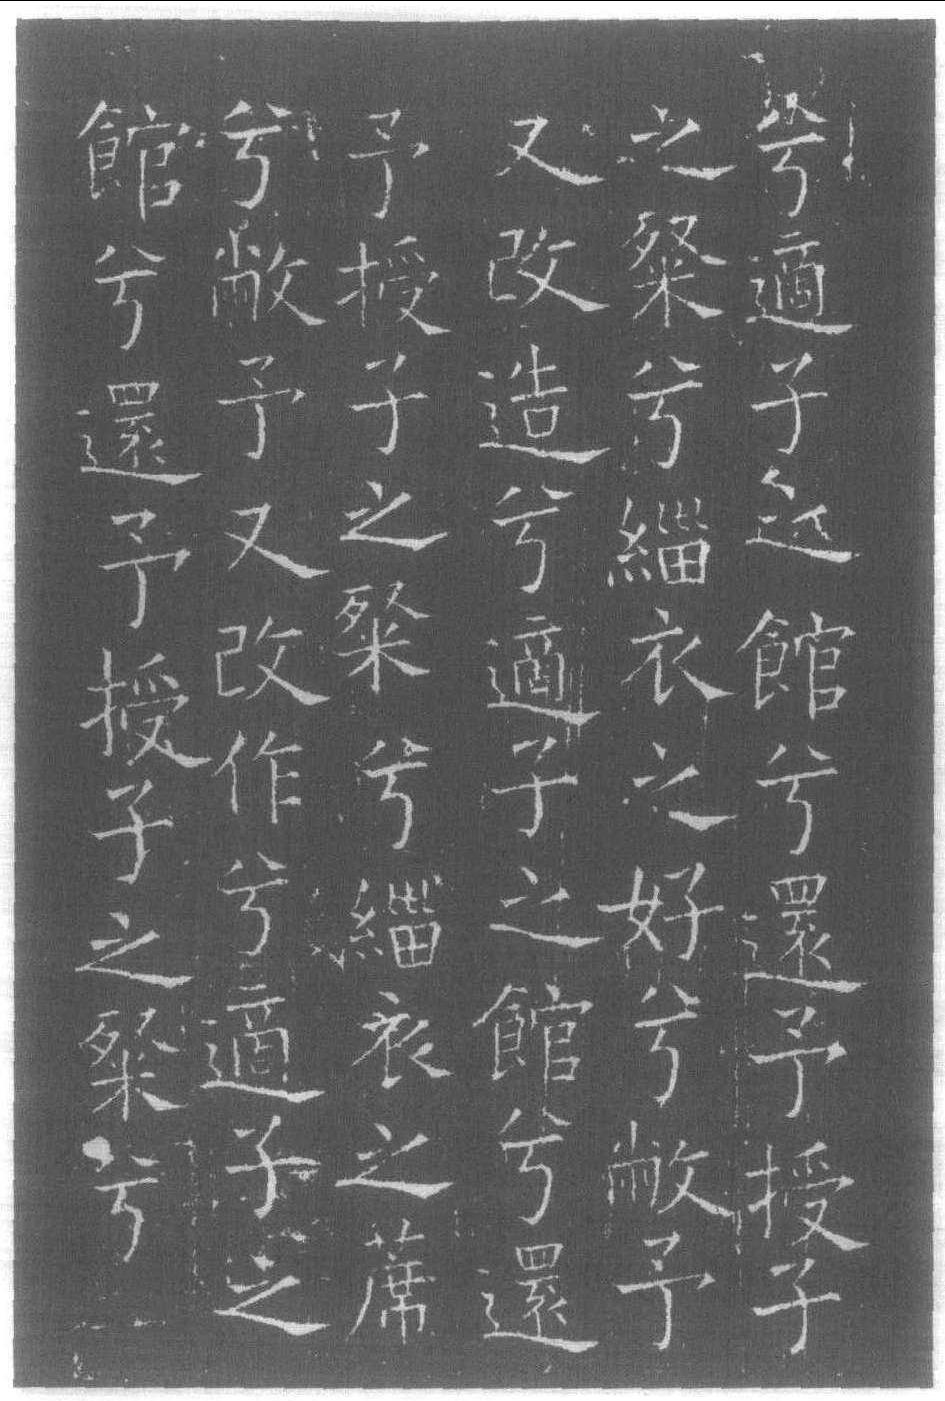 兮適子之館兮還予授子
之粲兮緇衣之好兮敝予
又改造兮適子之館兮還
予授子之粲兮緇衣之蓆
兮敝予又改作兮適子之
館兮還予授子之粲兮